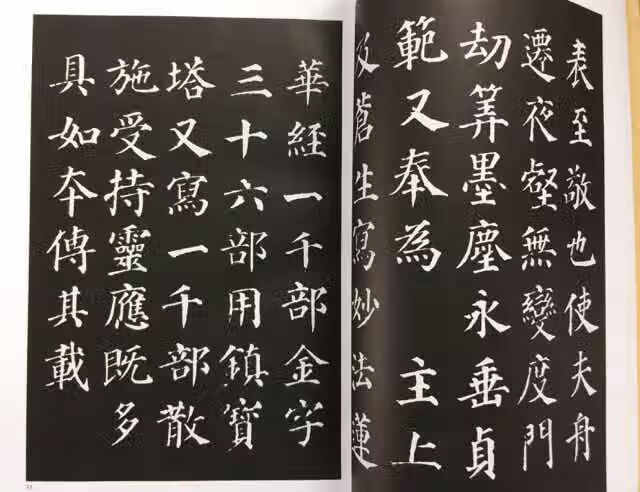 表至敬也使夫舟
遷夜壑無變度門
劫筭墨塵永垂貞
範又奉為 主上
及蒼生寫妙法蓮
華經一千部金字
三十六部用鎮寶
塔又寫一千部散
施受持靈應既多
具如夲傳其載